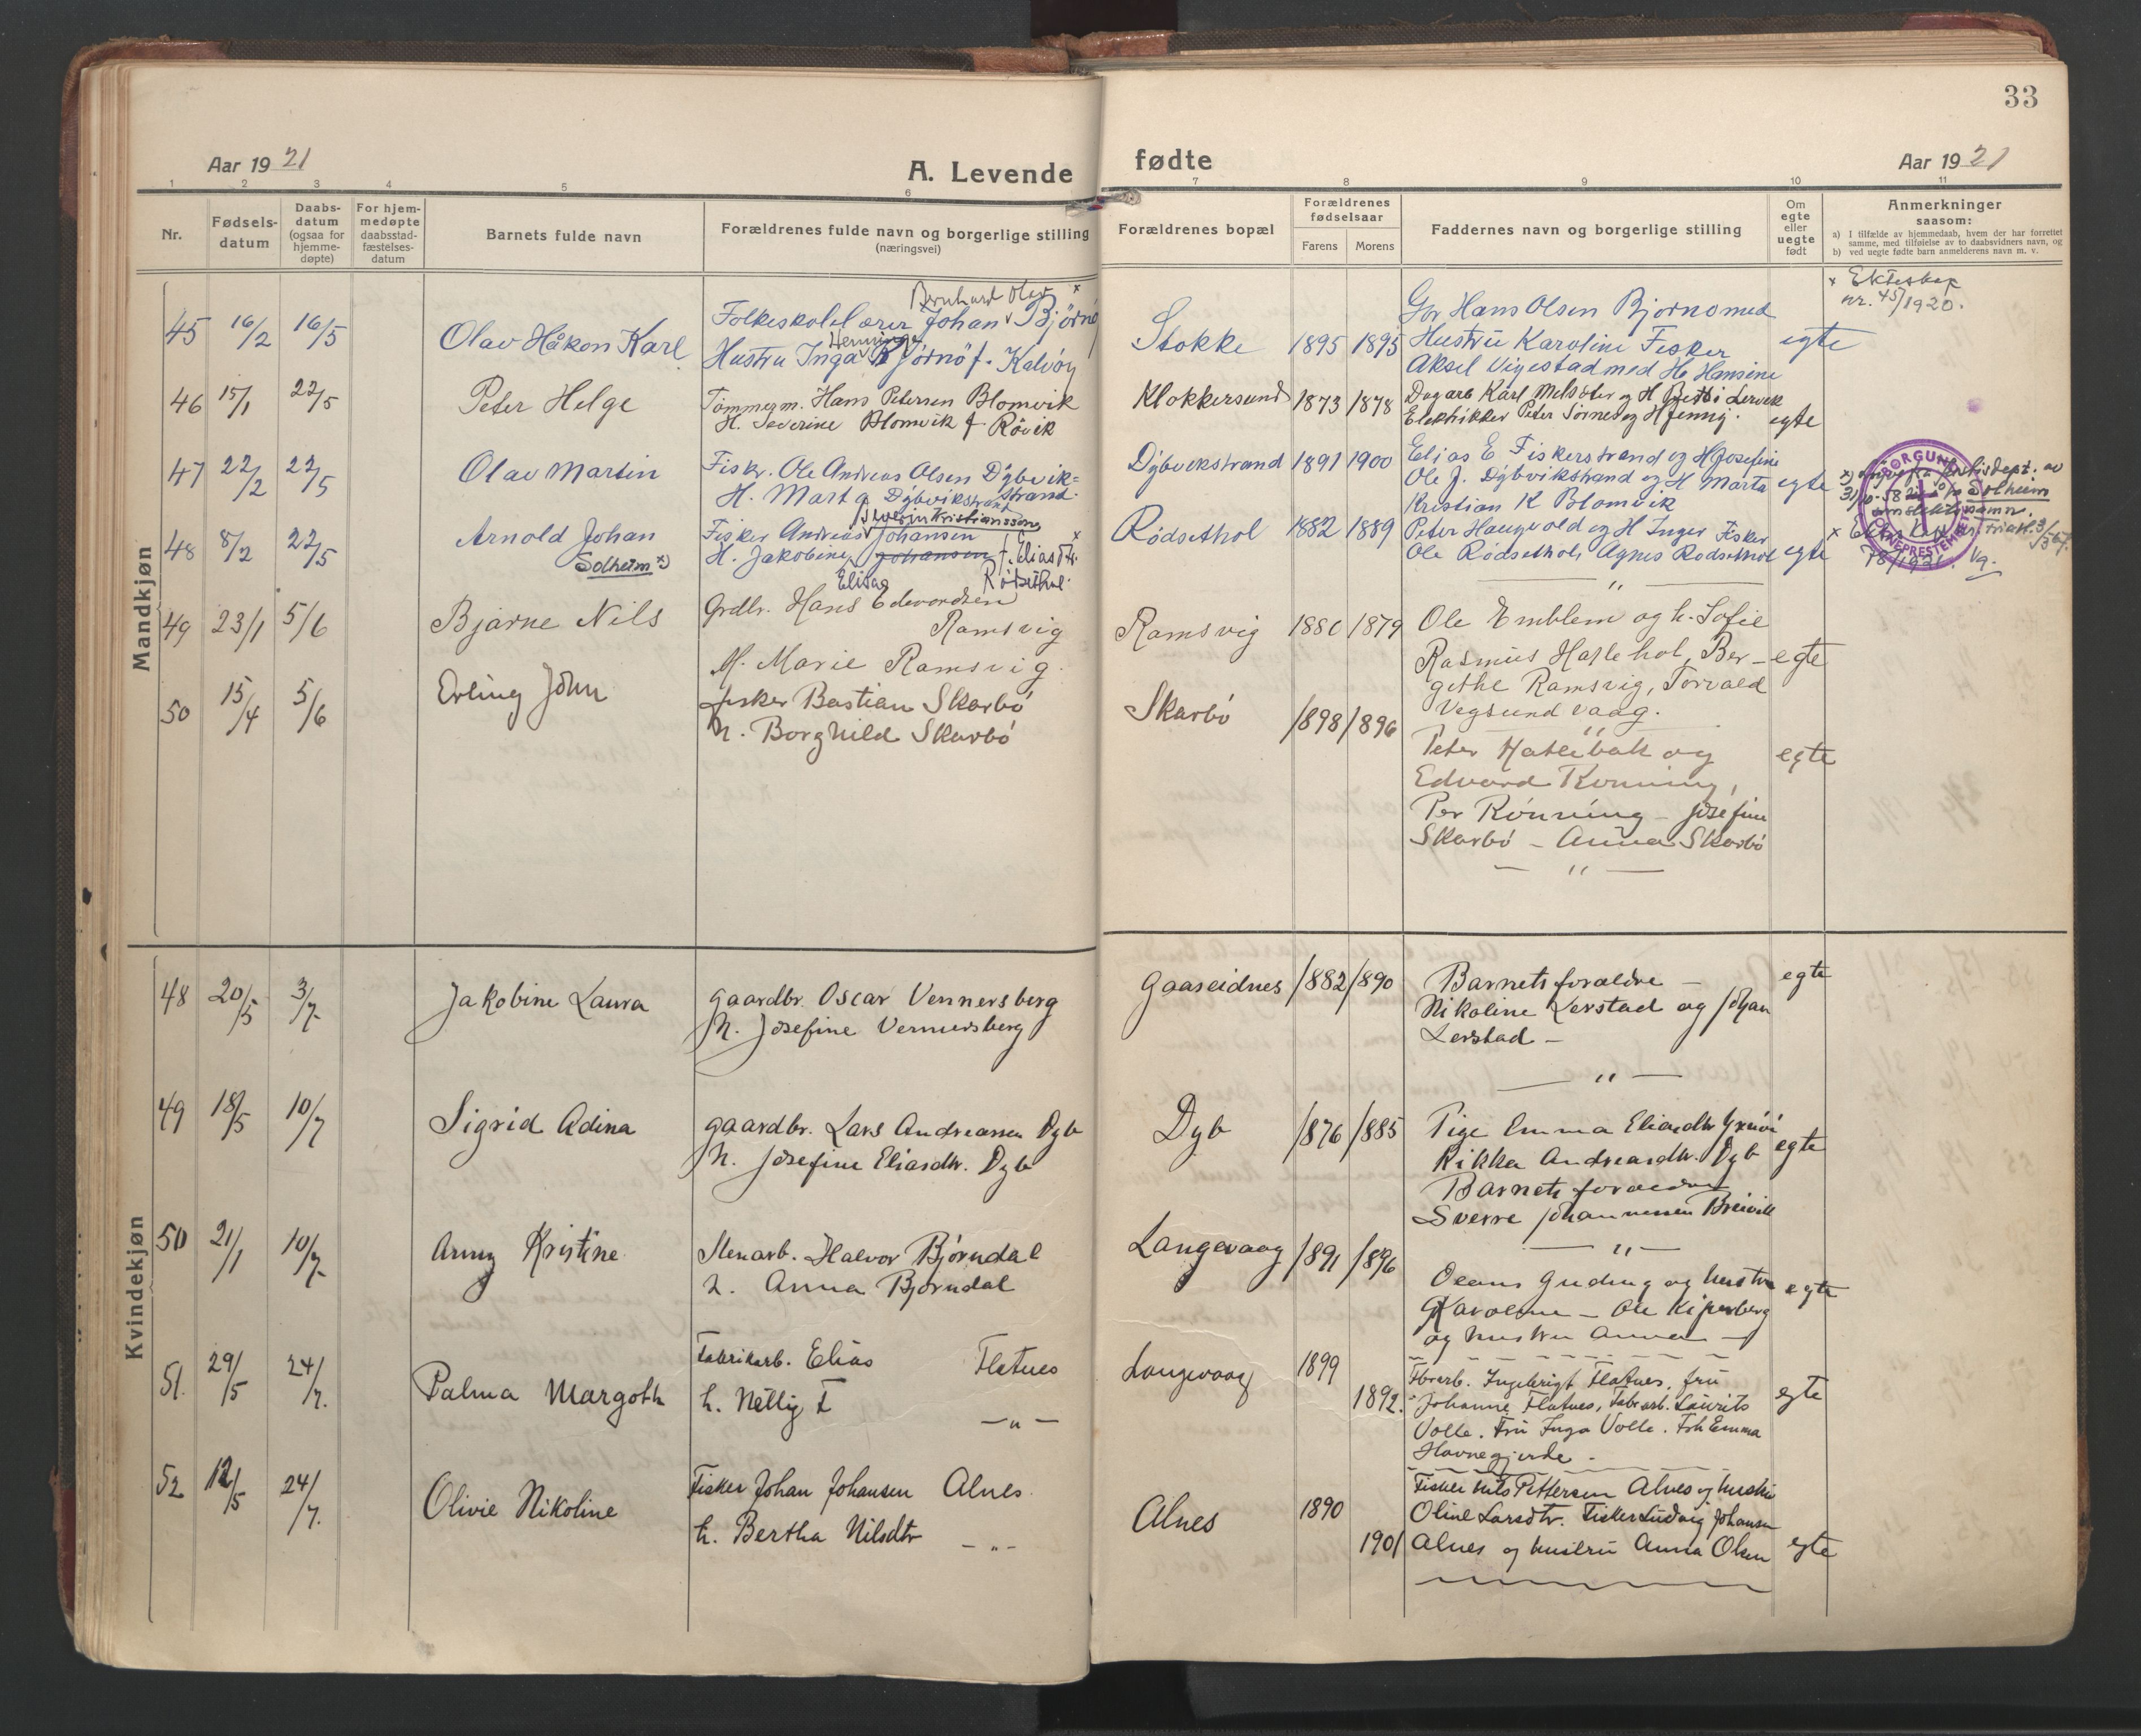 33
Aar 1921
A. Levende fødte
Aar 1921
1 2 3 4 5 6 7 8 9 10 11
Nr.
Fødsels-
datum
Daabs-
datum
(ogsaa for
hjemme-
døpte)
For hjem-
medøpte
daabsstad-
fæstelses-
datum
Barnets fulde navn
Forældrenes fulde navn og borgerlige stilling
(næringsvei)
Forældrenes bopæl
Forældrenes
fødselsaar
Farens
Morens
Faddernes navn og borgerlige stilling
Om
egte
eller
uegte
født
Anmerkninger
saasom:
a) I tilfælde av hjemmedaab, hvem der har forrettet
samme, med tilføielse av to daabsvidners navn, og
b) ved uegte fødte barn anmelderens navn m. v.
Mandkjøn
45 16/2 16/5 Olav Håkon Karl
Bernhard Olav x
Folkeskolelærer Johan Bjørnö
Henninge
Hustru Inga Bjørnö f. Kalvöy
Stokke 1895 1895
Gbr Hans Olsen Bjorno med
Hustru Karoline Fisker
Aksel Vigestad med H. Hansine
egte
x Ekteskap
nr. 45/1920.
46 15/1 22/5 Peter Helge
Tømmerm. Hans Petersen Blomvik
H. Severine Blomvik f. Røvik
Klokkersund 1873 1878
Dagarb Karl Melsæter og H Lervik
Elektrikker Peter Sørnes og H Jenny.
egte
47 22/2 22/5 Olav Martin
Fisker. Ole Andreas Olsen Dybvik=
strand.
H. Marta Dybvikstrand
Dybvikstrand 1891 1900
Elias E Fiskerstrand og H Josefine
Ole J. Dybvikstrand og H Marta
Kristian K Blomvik
egte
48 8/2 22/5 Arnold Johan
Solheim x)
Severin Kristiansson
Fisker Andreas Johansen x
H. Jakobine Johansen f. Eliasdtr.
Elisa Rödsethol.
Rödsethol 1882 1889
Peter Haugvold og H Inger Fisker
Ole Rödsethol, Agnes Rodsethol
egte
BORGUND
SOKNEPRESTEMBETE
31/10-58
Solheim
78/1921. Vg.
49 23/1 5/6 Bjarne Nils
Grdbr. Hans Edvardsen
Ramsvig
H. Marie Ramsvig.
Ramsvig 1880 1879
Ole Emblem og h. Sofie
Rasmus Haslehol, Ber-
gethe Ramsvig, Torvald
Vegsund vaag.
egte
50 15/4 5/6 Erling John
Fisker Bastian Skarbö
h. Borghild Skarbö
Skarbö 1898 1896
Peter Hatlebak og
Edvard Rönning,
Per Rönning - Josefine
Skarbö - Anna Skarbö
egte
Kvindekjøn
48 20/5 3/7 Jakobine Laura
gaardbr. Oscar Vennersberg
h. Josefine Vennersberg
Gaaseidnes 1882 1890
Barnets forældre -
Nikoline Lerstad og Johan
Lerstad -
egte
49 18/5 10/7 Sigrid Adina
gaardbr. Lars Andreassen Dyb
h. Josefine Eliasdtr. Dyb
Dyb 1876 1885
Pige Emma Eliasdtr
Rikka Andreasdtr. Dyb
Barnets forældre
Sverre Johannessen Breivik
egte
50 21/1 10/7 Anny Kristine
Stenarb. Halvor Bjørndal
h. Anna Bjørndal
Langevaag 1891 1896
Guding og hustru
Karoline - Ole Kiperberg
og hustru Anna -
egte
51. 29/5 24/7. Palma Margoth
Fabrikarb. Elias Flatnes
h. Nelly F - " -
Langevaag 1899 1892.
Fbrarb. Ingebrigt Flatnes, fru
Johanne Flatnes, Fabrarb. Laurits
Volle. Fru Inga Volle. Frk Emma
Havnegjerde.
egte
52 12/5 24/7. Olivie Nikoline
Fisker Johan Johansen Alnes
h. Bertha Nilsdtr - " -
Alnes 1890 1901
Fisker Nils Pettersen Alnes og hustru
Oline Larsdtr. Fisker Ludvig Johansen
Alnes og hustru Anna Olsen
egte